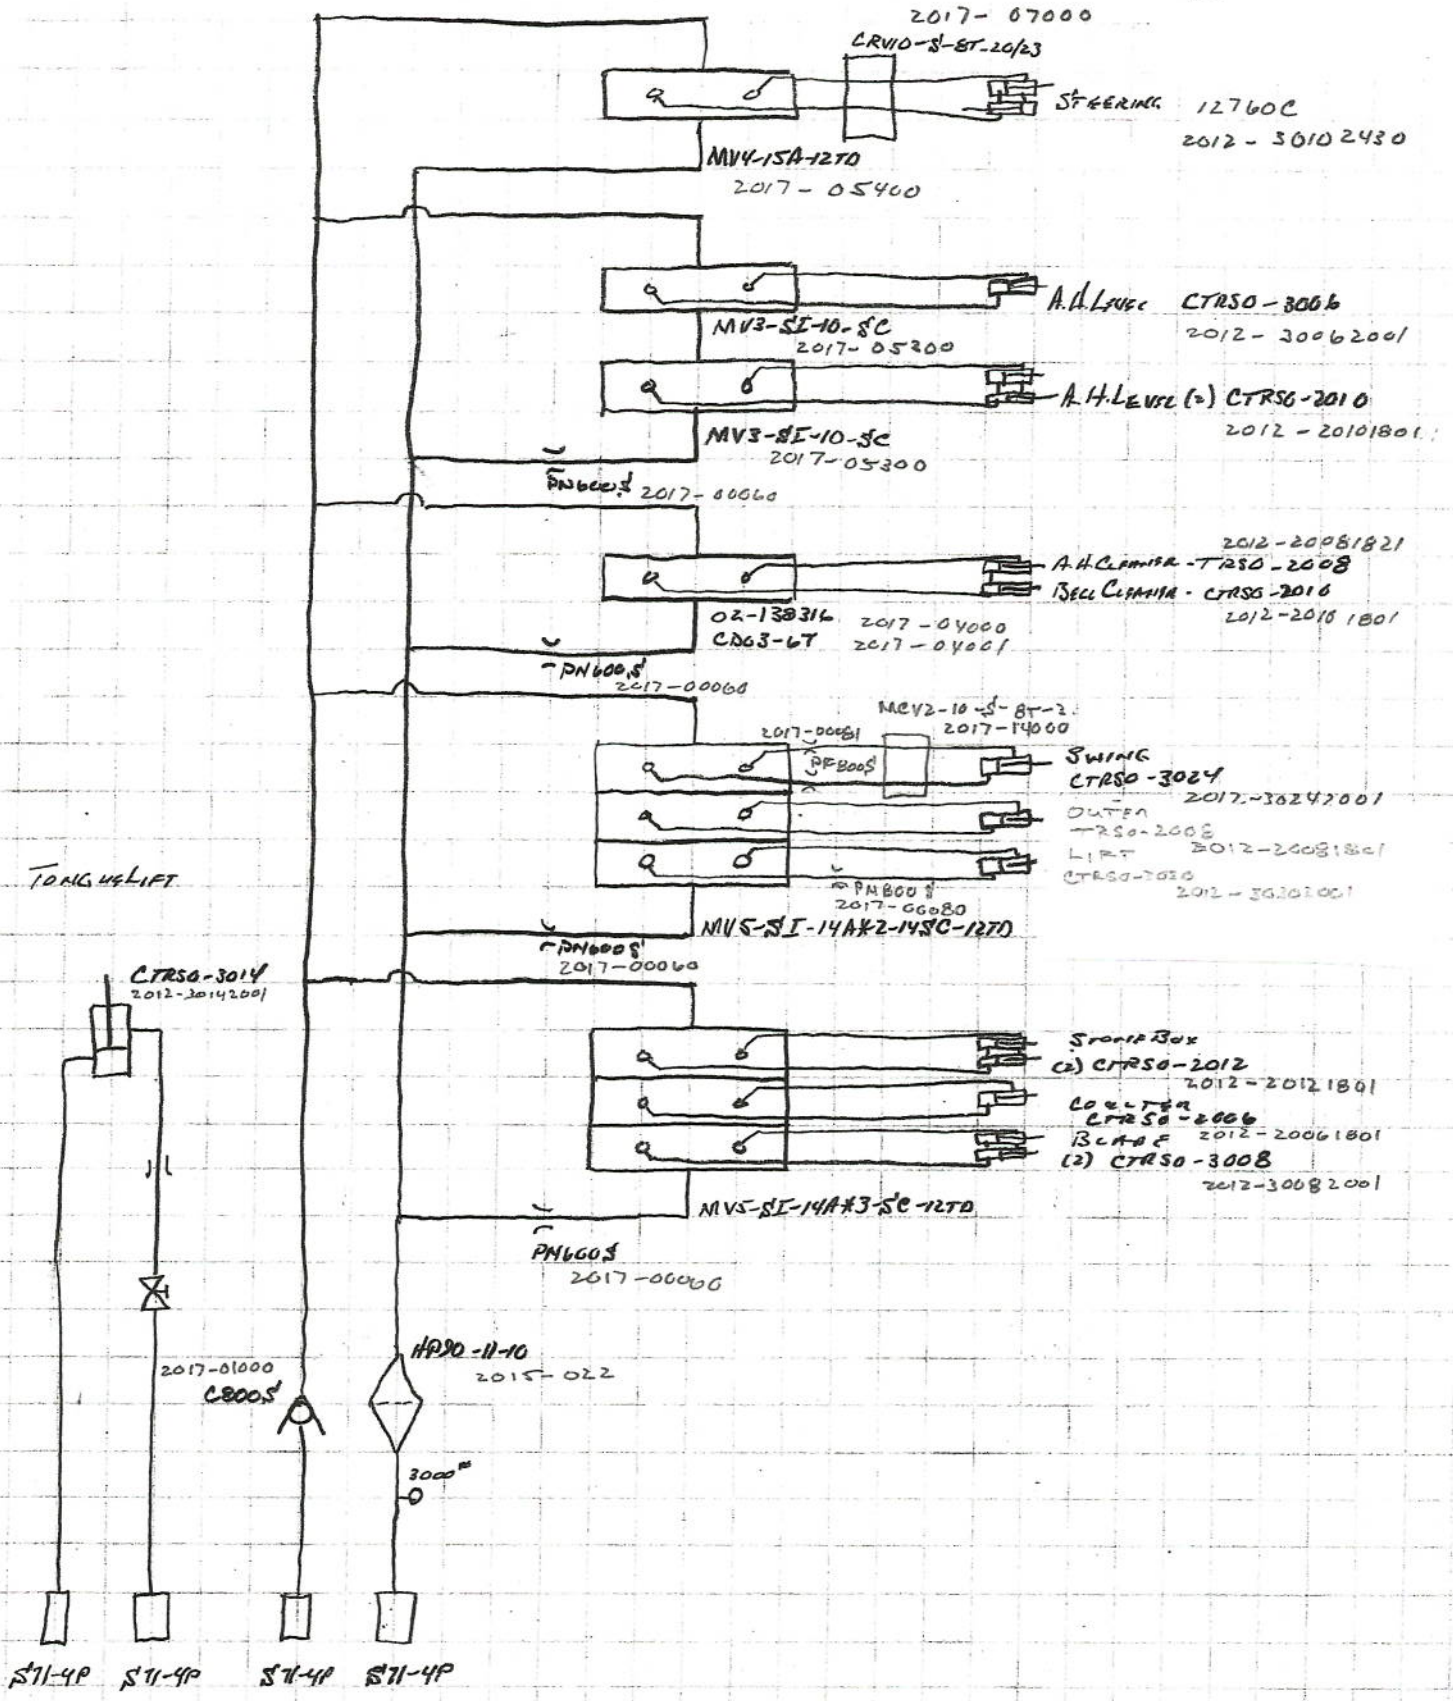 2017-07000
CRV10-S-8T-20/23
STEERING 12760C
2012-30102430
MV4-15A-12TD
2017-05400
A.H.LEVEL CTRSO-3006
2012-30062001
MV3-SI-10-SC
2017-05300
A.H.LEVEL (2) CTRSO-2010
2012-20101801
MV3-SI-10-SC
2017-05300
PN600S 2017-00060
2012-20081821
A.H.CLEANER-TRSO-2008
BELL CLEANER-CTRSO-2010
2012-2010 1801
02-138316 2017-04000
CDG3-6T 2017-04001
PN600S
2017-00060
MCV2-10-S-8T-2
2017-14000
2017-00081
PF800S
SWING
CTRSO-3024
2012-30242001
OUTER
TRSO-2008
LIFT 2012-20081801
CTRSO-3020
2012-30202001
PN800S
2017-00080
MV5-SI-14A*2-14SC-12TD
PN600S
2017-00060
TONGUE LIFT
CTRSO-3014
2012-30142001
STONE BOX
(2) CTRSO-2012
2012-20121801
COULTER
CTRSO-2006
BLADE 2012-20061801
(2) CTRSO-3008
2012-30082001
MV5-SI-14A*3-SC-12TD
PN600S
2017-00060
HP90-11-10
2015-022
2017-01000
C800S
3000
S71-4P S71-4P S71-4P S71-4P